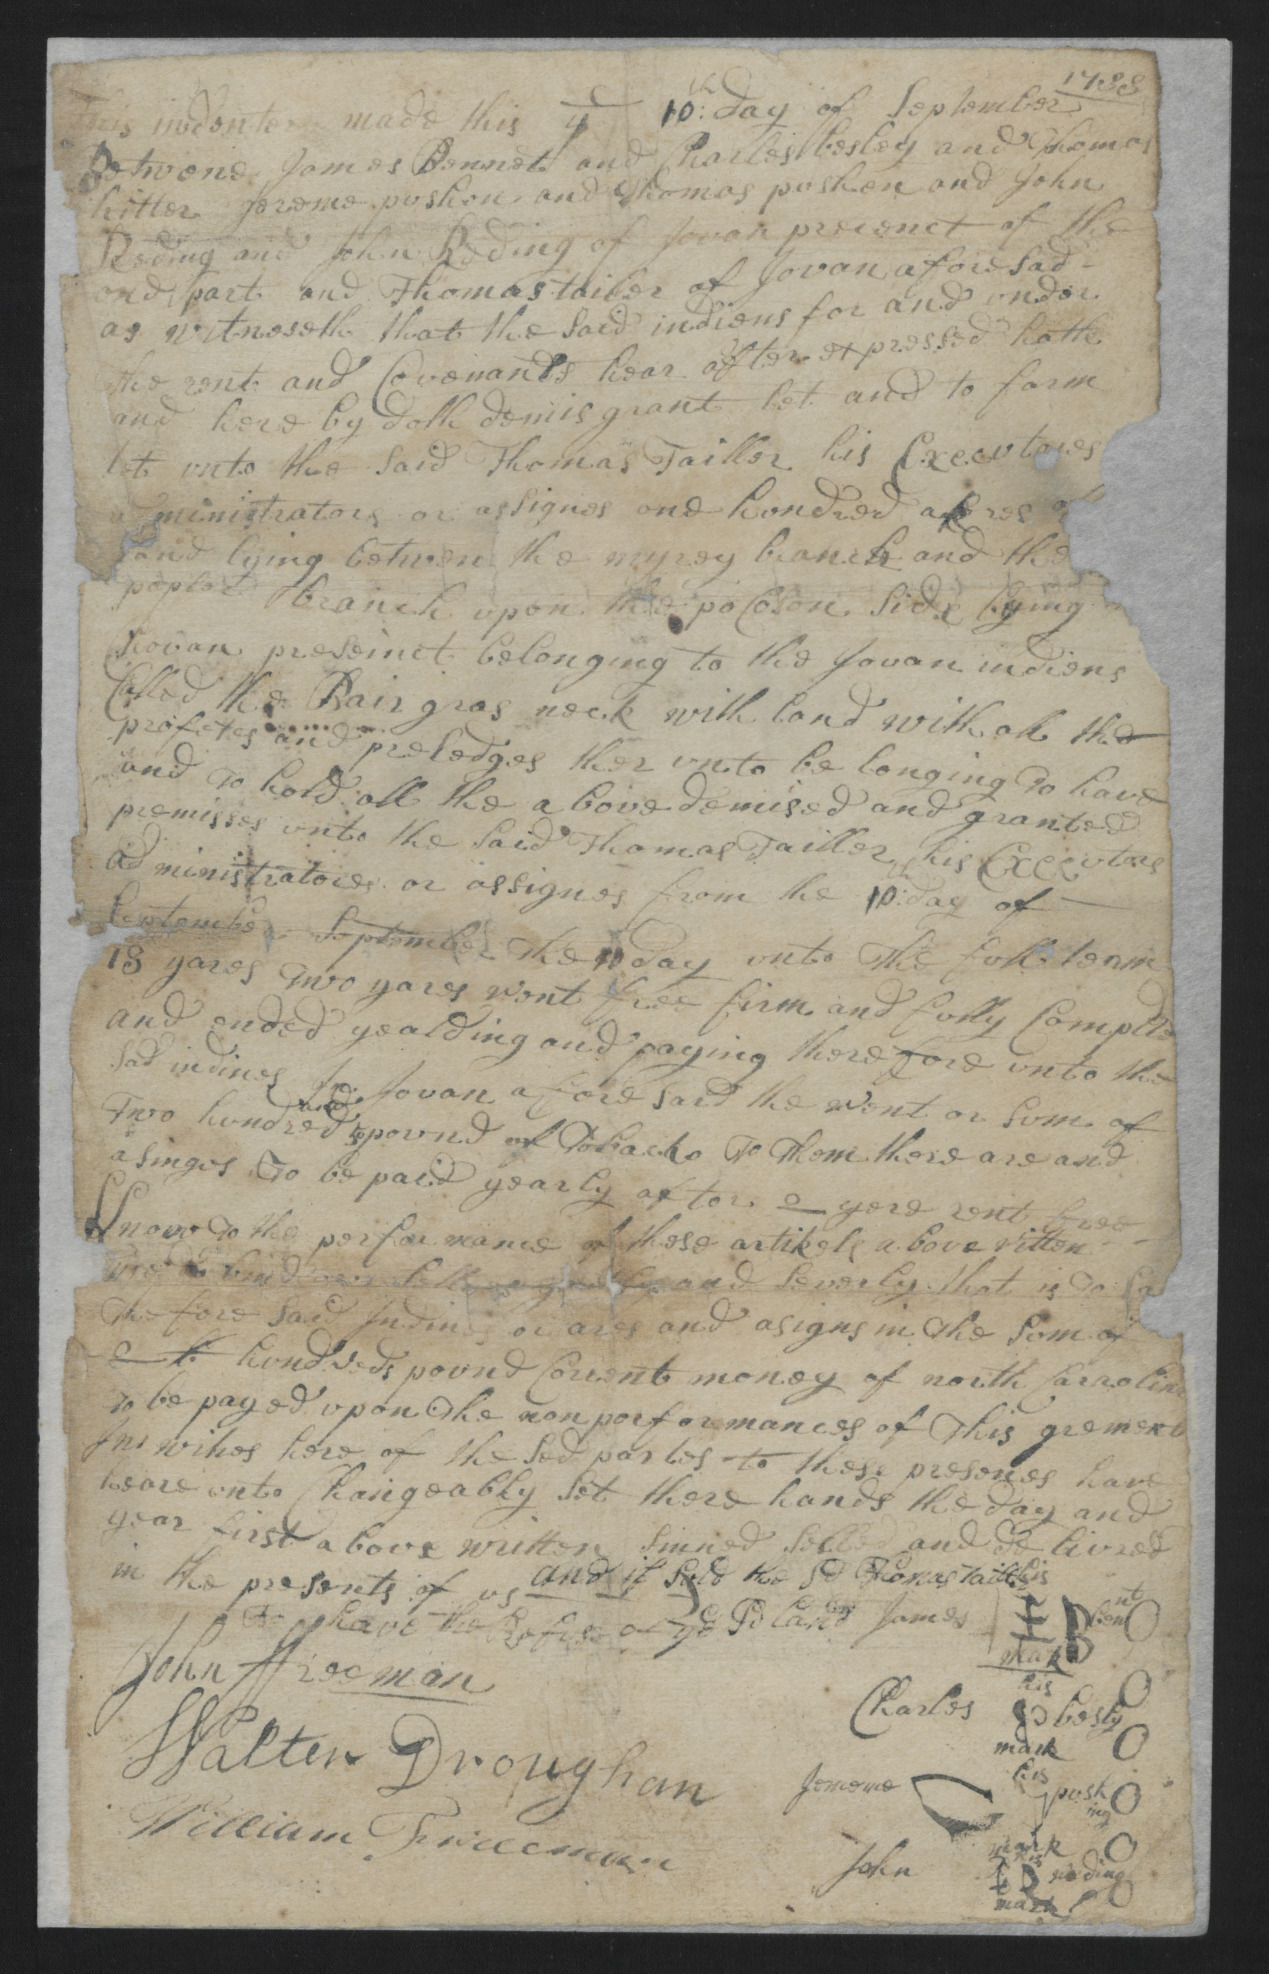 1733
This indenter made this ye 10th: day of September
Betwene James Bennet and Charles besley and Thomas
hitter Jereme pushen and Thomas pushen and John
Reding and John Reding of Jovan precenct of the
one part and Thomas tailer of Jovan afore sad -
as witneseth that the said indiens for and under
the rent and Covenants hear after expressed hath
and here by doth demis grant let and to farm
let unto the said Thomas Tailler his Executores
administrators or assignes one hundred akeres of
land lying betwen the myrey branch and the
popler branch upon the pocoson side lying
Chovan preseinct belonging to the Jovan indiens
Called the Bair gras neck with land with all the
profetes and preledges ther unto be longing To have
and To hold all the above demised and granted
premisses unto the said Thomas Tailler his Executors
administratores or assignes from the 10th: day of —
September September the 10 day unto the full term
18 yares Two yares went free firm and fully Complte
and ended yealding and paying there fore unto the
sad indines Jovan afore said the Rent or Som of
Two hundred and pound of Tobacko To Them there are and
asinges To be paid yearly after e yere rent free
Know To the performance of these artikels above ritten
and Severly that is To Sa
The fore said Indines or ares and asigns in the Som of
hundreds pound Corrent money of north Carrolina
To be payed upon the non performances of This grement
In witnes here of the sed partes to these presenes have
heare unto Changeably Set there hands the day and
year first above written Sinned Selled and delivred
in the presents of us and if Sold the sd Thomas Tailler
To have the Refuse of ye sd land
James his mark Bennt
John Freeman
Charles his mark besly
Walter Droughan
Jereme his mark pushing
William Freeman
John his mark Reding